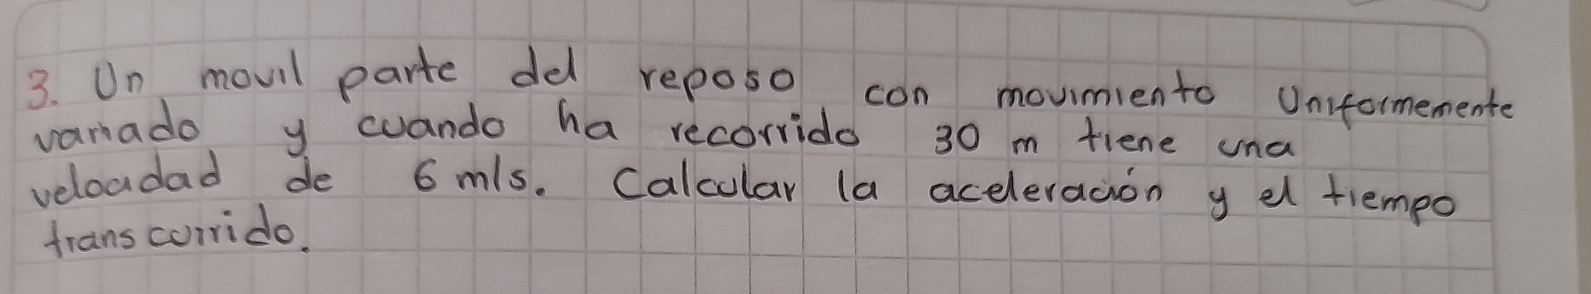 3. Un movil parte del reposo con movimiento Uniformemente
variado y cuando ha recorrido 30 m tiene una
velocidad de 6 m/s. Calcular la aceleración y el tiempo
transcurrido.